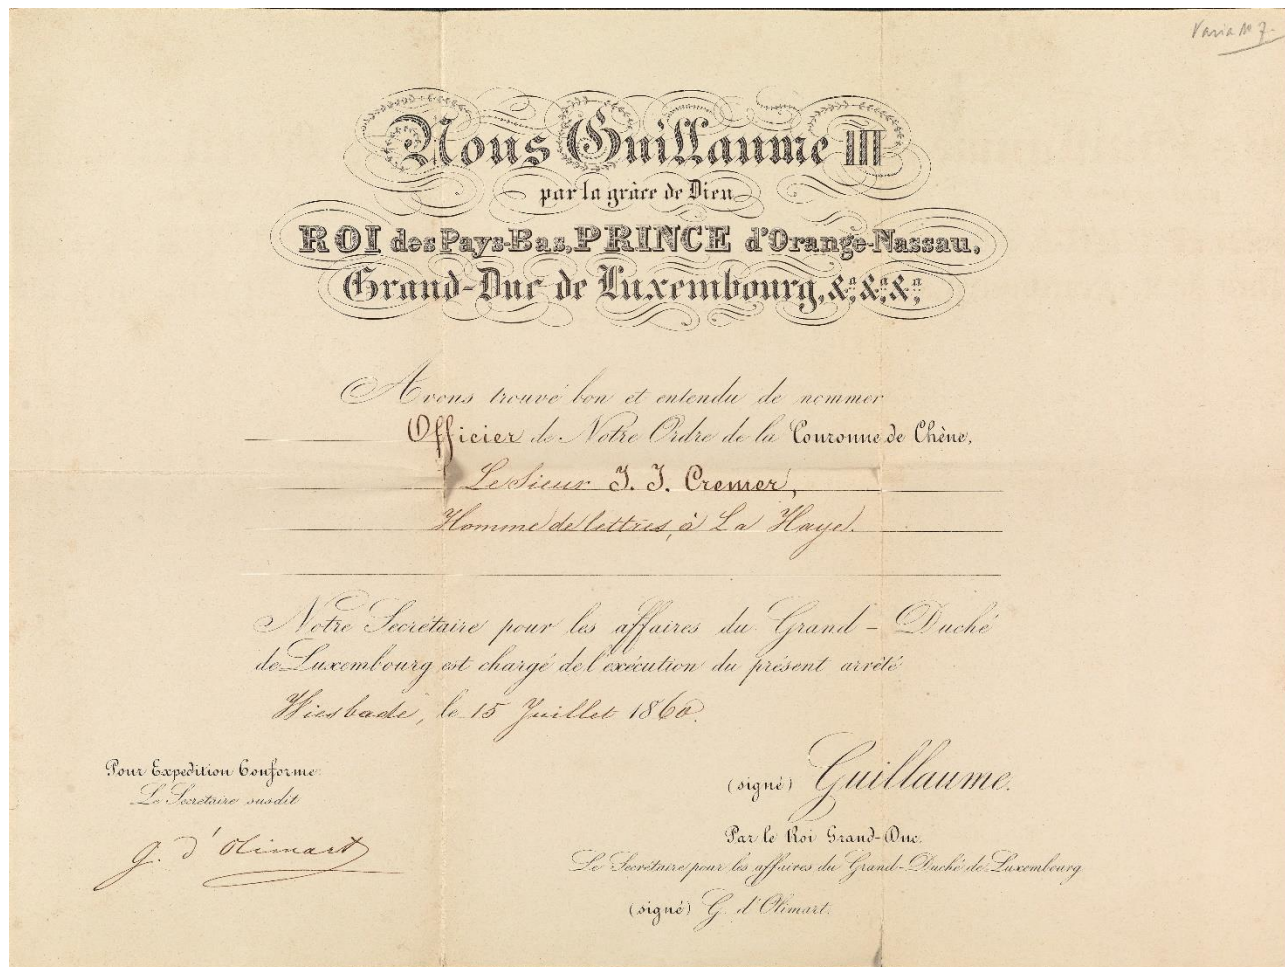 Varia No 7.
Nous Guillaume III
par la grâce de Dieu
ROI des Pays-Bas, PRINCE d'Orange-Nassau,
Grand-Duc de Luxembourg, &a; &a; &a;
Avons trouvé bon et entendu de nommer
Officier de Notre Ordre de la Couronne de Chêne,
Le Sieur J. J. Cremer,
Homme de lettres, à La Haye.
Notre Secrétaire pour les affaires du Grand-Duché
de Luxembourg est chargé de l'exécution du présent arrêté
Wiesbade, le 15 Juillet 1860.
Pour Expedition Conforme
Le Secrétaire susdit
G. d'Olimart
(signé) Guillaume.
Par le Roi Grand-Duc.
Le Secrétaire pour les affaires du Grand-Duché de Luxembourg
(signé) G. d'Olimart.